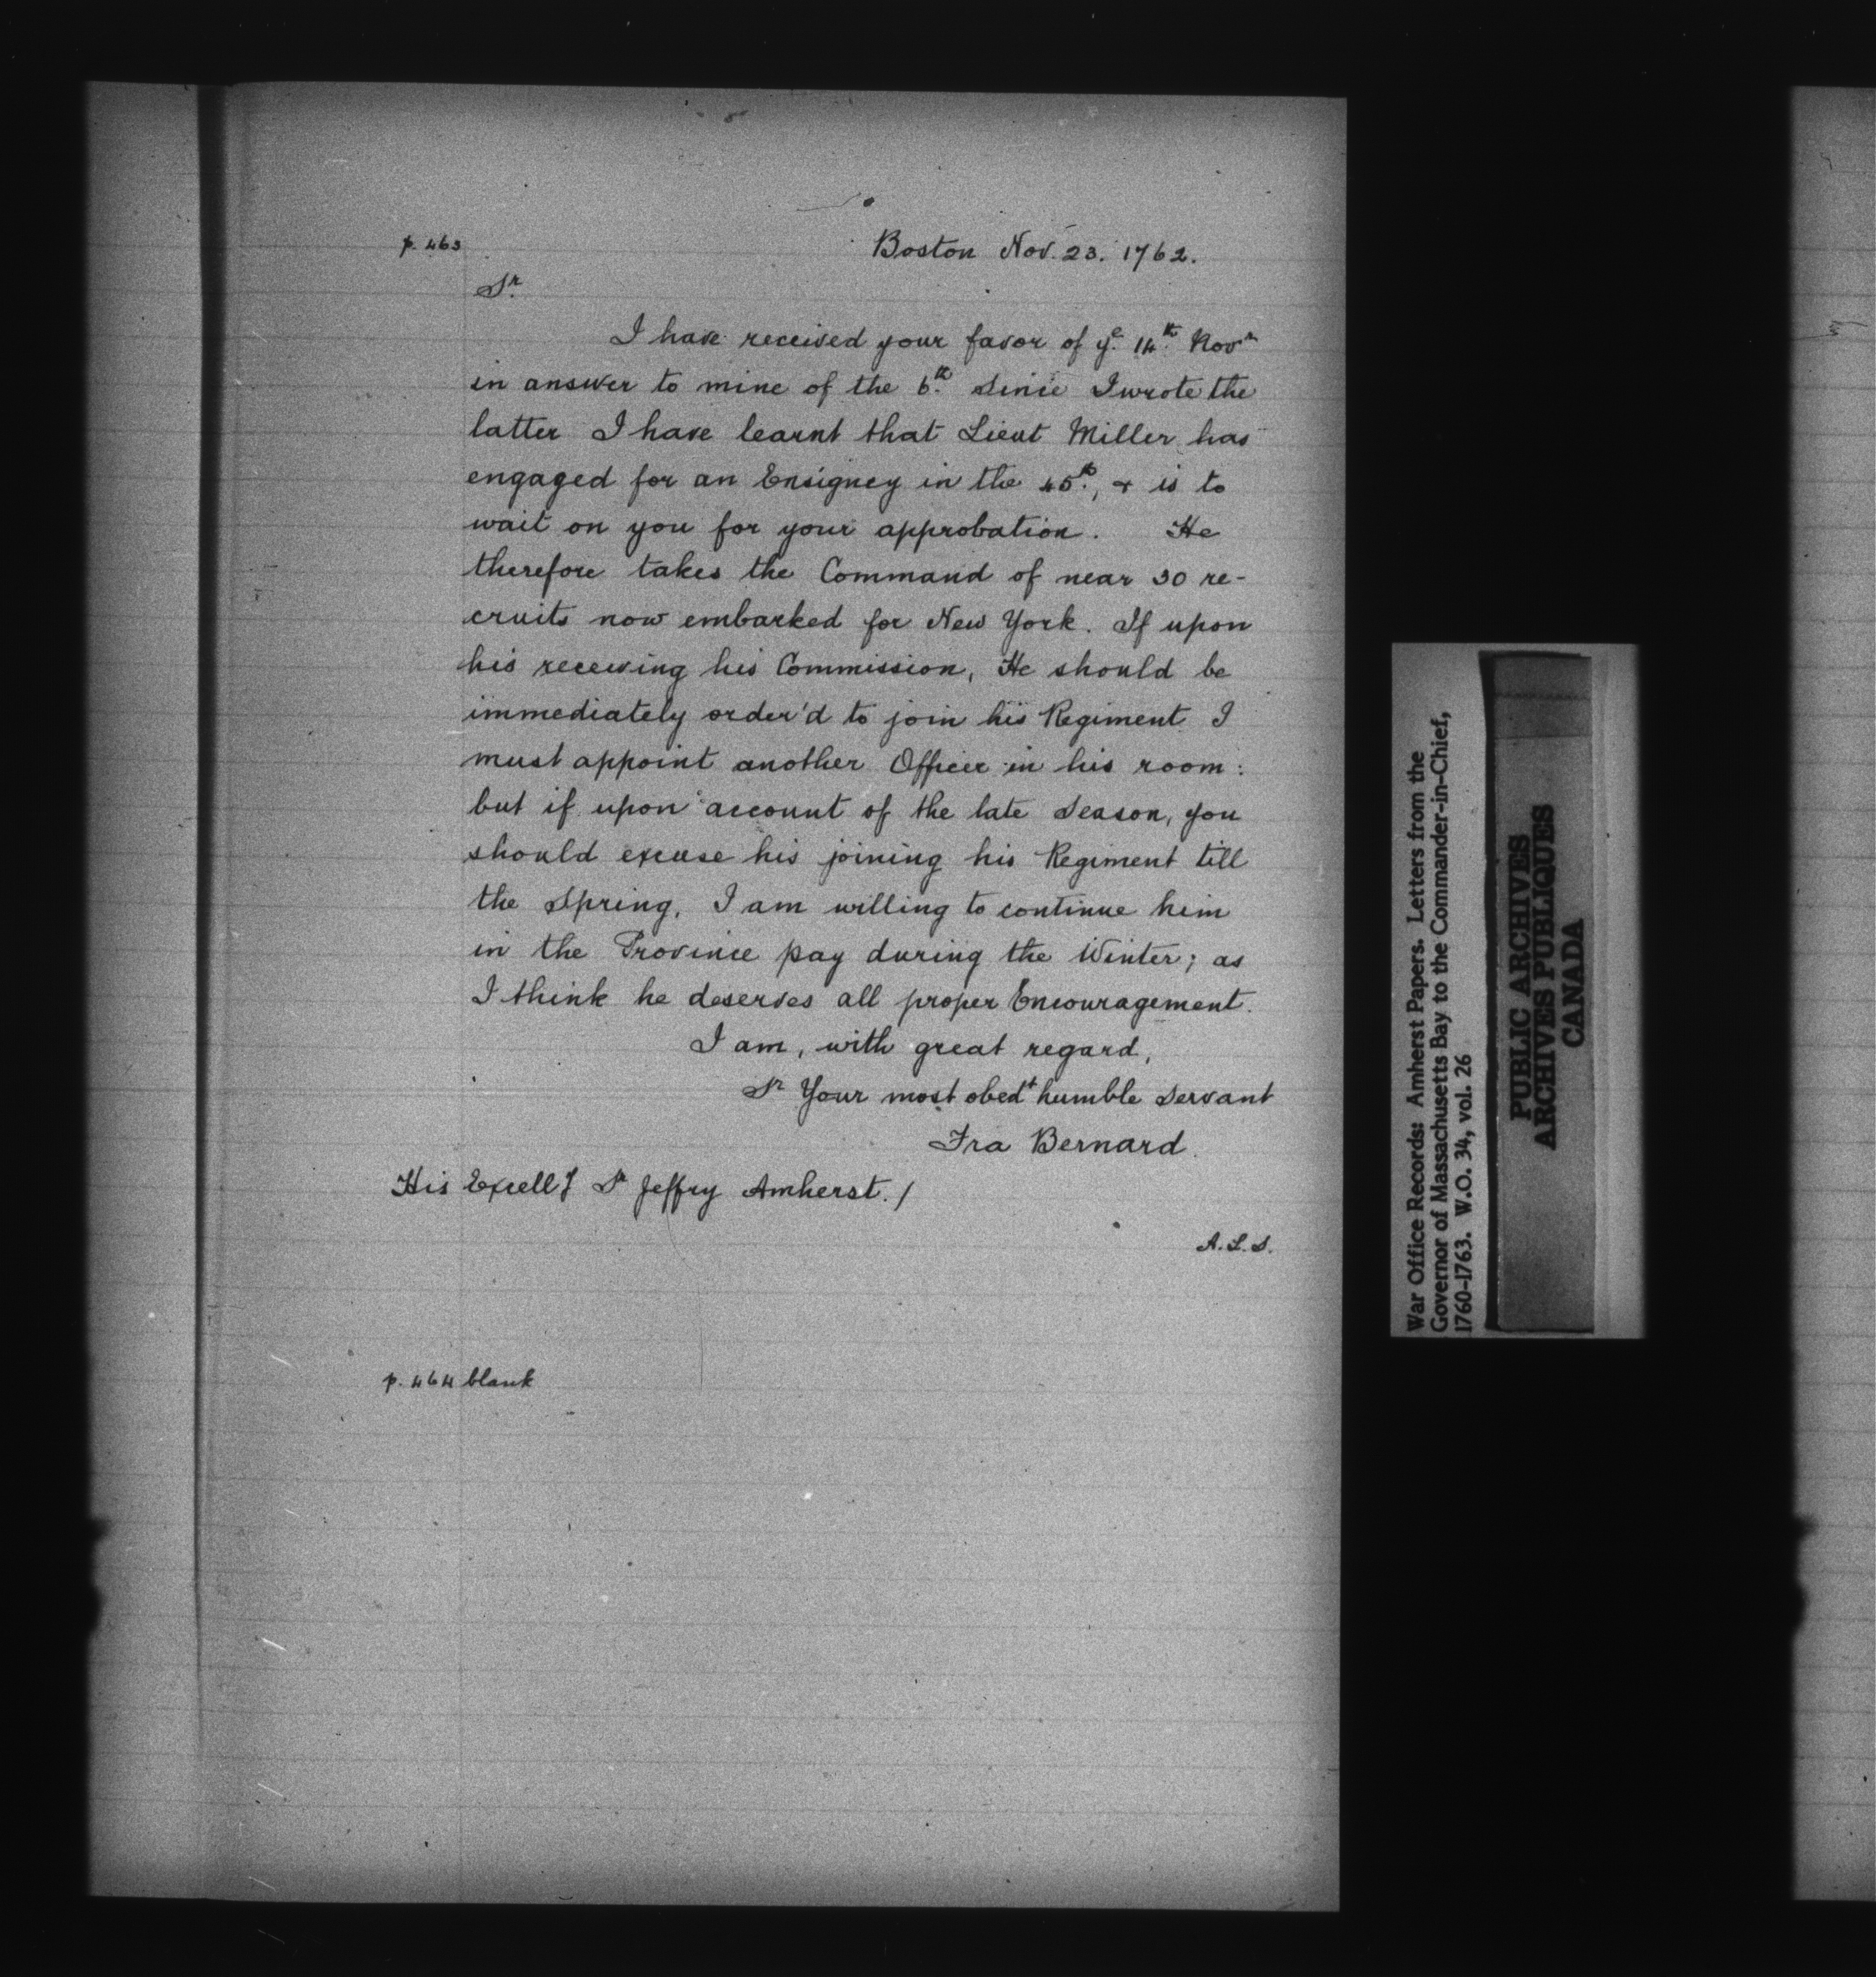 p. 463
Boston Nov. 23. 1762.
Sr.
I have received your favor of ye. 14th. Novr
in answer to mine of the 6th. Since I wrote the
latter I have learnt that Lieut Miller has
engaged for an Ensigncy in the 45th., & is to
wait on you for your approbation. He
therefore takes the Command of near 30 re-
cruits now embarked for New York. If upon
his receiving his Commission, He should be
immediately order'd to join his Regiment I
must appoint another Officer in his room:
but if upon account of the late Season, you
should excuse his joining his Regiment till
the Spring, I am willing to continue him
in the Province pay during the Winter; as
I think he deserves all proper Encouragement.
I am, with great regard,
Sr Your most obedt humble Servant
Fra Bernard.
His Excelly Sr Jeffry Amherst. /
A. L. S.
p. 464 blank
War Office Records: Amherst Papers. Letters from the
Governor of Massachusetts Bay to the Commander-in-Chief,
1760-1763. W.O. 34, vol. 26
PUBLIC ARCHIVES
ARCHIVES PUBLIQUES
CANADA